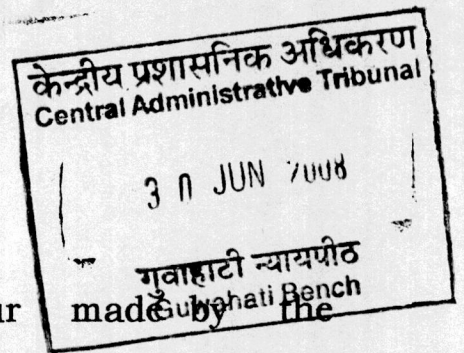 केन्द्रीय प्रशासनिक अधिकरण
Central Administrative Tribunal
30 JUN 2008
गुवाहाटी न्यायपीठ
Guwahati Bench
made by the